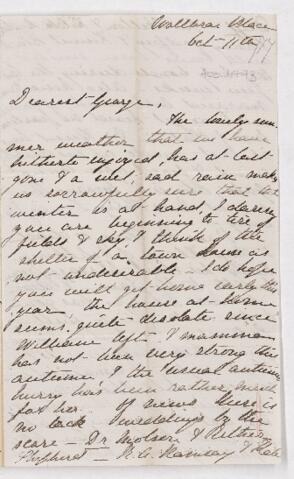 Wallbrae Place
Oct 11th
Dearest George,
The lovely sum-
mer weather that we have
hitherto enjoyed, has at last
gone & a wet, sad rain makes
us sorrowfully sure that
winter is at hand, I daresay
you are beginning to tire of
fields & sky, & think of the
shelter of a town house as
not undesirable - I do hope
you will get home early this
year the house at home
seems quite desolate since
William left. Mamma
has not been very strong this
autumn & the usual autumn
hurry has been rather much
for her. of news there is
no lack weddings by the
score - Dr Molson &
Shepherd - R. A. Ramsay & Kate